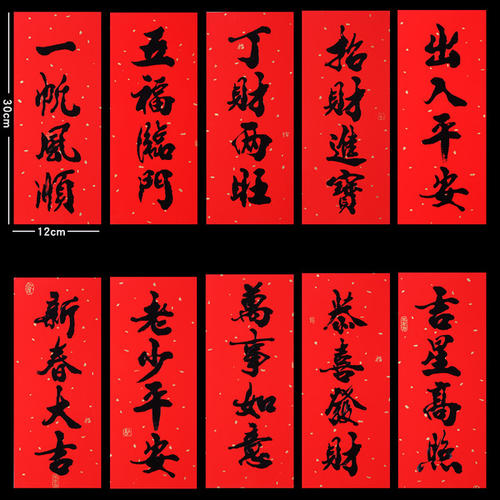 一帆風順
五福臨門
丁財兩旺
招財進寶
出入平安
30cm
12cm
新春大吉
老少平安
萬事如意
恭喜發財
吉星高照